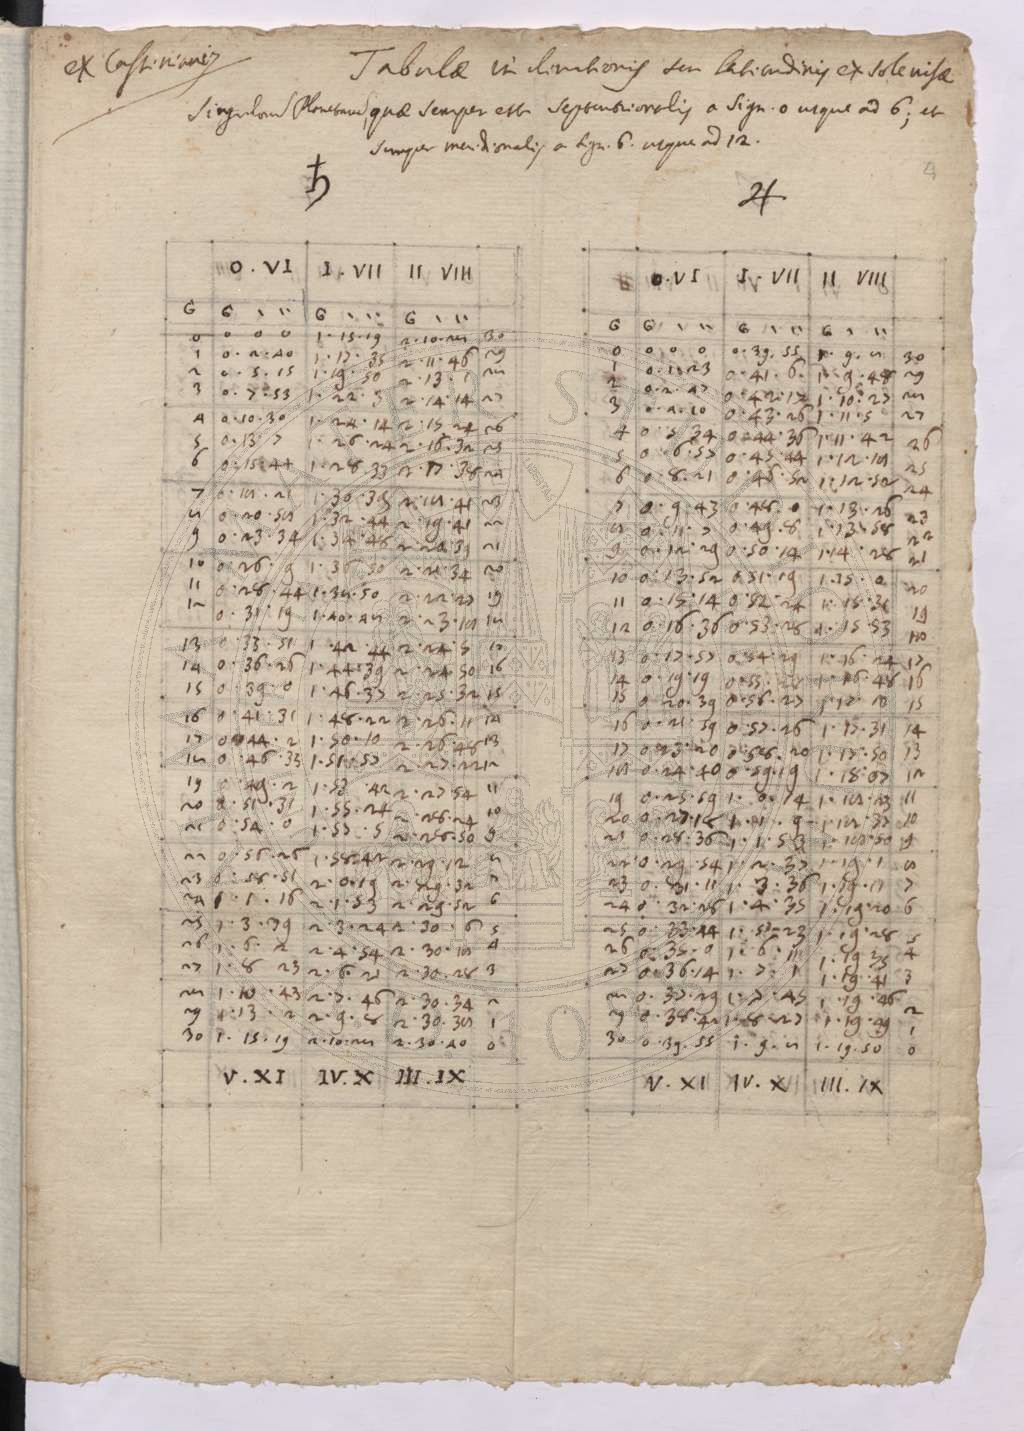 ex Cassinianis
Tabulæ inclinationis seu latitudinis ex sole visæ
singulorum Planetarum, quæ semper est septentrionalis a sign. 0 usque ad 6; et
semper meridionalis a sign. 6. usque ad 12.
4
♄
O . VI I . VII II VIII
G G ' '' G ' '' G ' ''
0 0 0 0 1.15.19 2.10.28 30
1 0.2.40 1.17.35 2.11.46 29
2 0.5.15 1.19.50 2.13.1 28
3 0.7.53 1.22.3 2.14.14 27
4 0.10.30 1.24.14 2.15.24 26
5 0.13.7 1.26.24 2.16.32 25
6 0.15.44 1.28.33 2.17.38 24
7 0.18.21 1.30.39 2.18.41 23
8 0.20.58 1.32.44 2.19.41 22
9 0.23.34 1.34.48 2.20.39 21
10 0.26.9 1.36.50 2.21.34 20
11 0.28.44 1.38.50 2.22.27 19
12 0.31.19 1.40.48 2.23.18 18
13 0.33.51 1.42.44 2.24.5 17
14 0.36.26 1.44.39 2.24.50 16
15 0.39.0 1.46.37 2.25.32 15
16 0.41.31 1.48.22 2.26.11 14
17 0.44.2 1.50.10 2.26.48 13
18 0.46.33 1.51.57 2.27.22 12
19 0.49.2 1.53.42 2.27.54 11
20 0.51.31 1.55.24 2.28.24 10
21 0.54.0 1.57.5 2.28.50 9
22 0.56.26 1.58.42 2.29.12 8
23 0.58.51 2.0.19 2.29.32 7
24 1.1.16 2.1.53 2.29.52 6
25 1.3.39 2.3.24 2.30.6 5
26 1.6.2 2.4.54 2.30.18 4
27 1.8.23 2.6.21 2.30.28 3
28 1.10.43 2.7.46 2.30.34 2
29 1.13.2 2.9.8 2.30.38 1
30 1.15.19 2.10.28 2.30.40 0
V . XI IV . X III . IX
♃
O . VI I . VII II VIII
G G ' '' G ' '' G ' ''
0 0 0 0 0.39.55 1.9.8 30
1 0.1.23 0.41.6 1.9.48 29
2 0.2.47 0.42.17 1.10.27 28
3 0.4.10 0.43.26 1.11.5 27
4 0.5.34 0.44.36 1.11.42 26
5 0.6.57 0.45.44 1.12.18 25
6 0.8.21 0.46.52 1.12.52 24
7 0.9.43 0.48.0 1.13.26 23
8 0.11.7 0.49.8 1.13.58 22
9 0.12.29 0.50.14 1.14.28 21
10 0.13.52 0.51.19 1.15.0 20
11 0.15.14 0.52.24 1.15.31 19
12 0.16.36 0.53.28 1.15.53 18
13 0.17.57 0.54.29 1.16.24 17
14 0.19.19 0.55. 1.16.48 16
15 0.20.39 0.56.27 1.17.10 15
16 0.21.59 0.57.26 1.17.31 14
17 0.23.20 0.58.20 1.17.50 13
18 0.24.40 0.59.19 1.18.07 12
19 0.25.59 1.0.14 1.18.23 11
20 0.27.18 1.1.9 1.18.37 10
21 0.28.36 1.1.53 1.18.50 9
22 0.29.54 1.2.37 1.19.1 8
23 0.31.11 1.3.36 1.19.11 7
24 0.32.26 1.4.35 1.19.20 6
25 0.33.44 1.5.23 1.19.28 5
26 0.35.0 1.6.11 1.19.35 4
27 0.36.14 1.7.1 1.19.41 3
28 0.37.29 1.7.45 1.19.46 2
29 0.38.42 1.8.27 1.19.49 1
30 0.39.55 1.9.8 1.19.50 0
V . XI IV . X III . IX